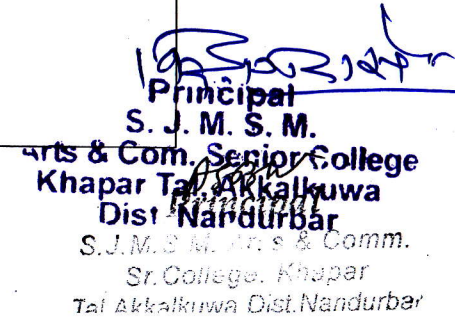 Principal
S. J. M. S. M.
Arts & Com. Senior College
Khapar Tal. Akkalkuwa
Principal
Dist Nandurbar
S.J.M.S M. Arts & Comm.
Sr. College. Khapar
Tal Akkalkuwa Dist. Nandurbar